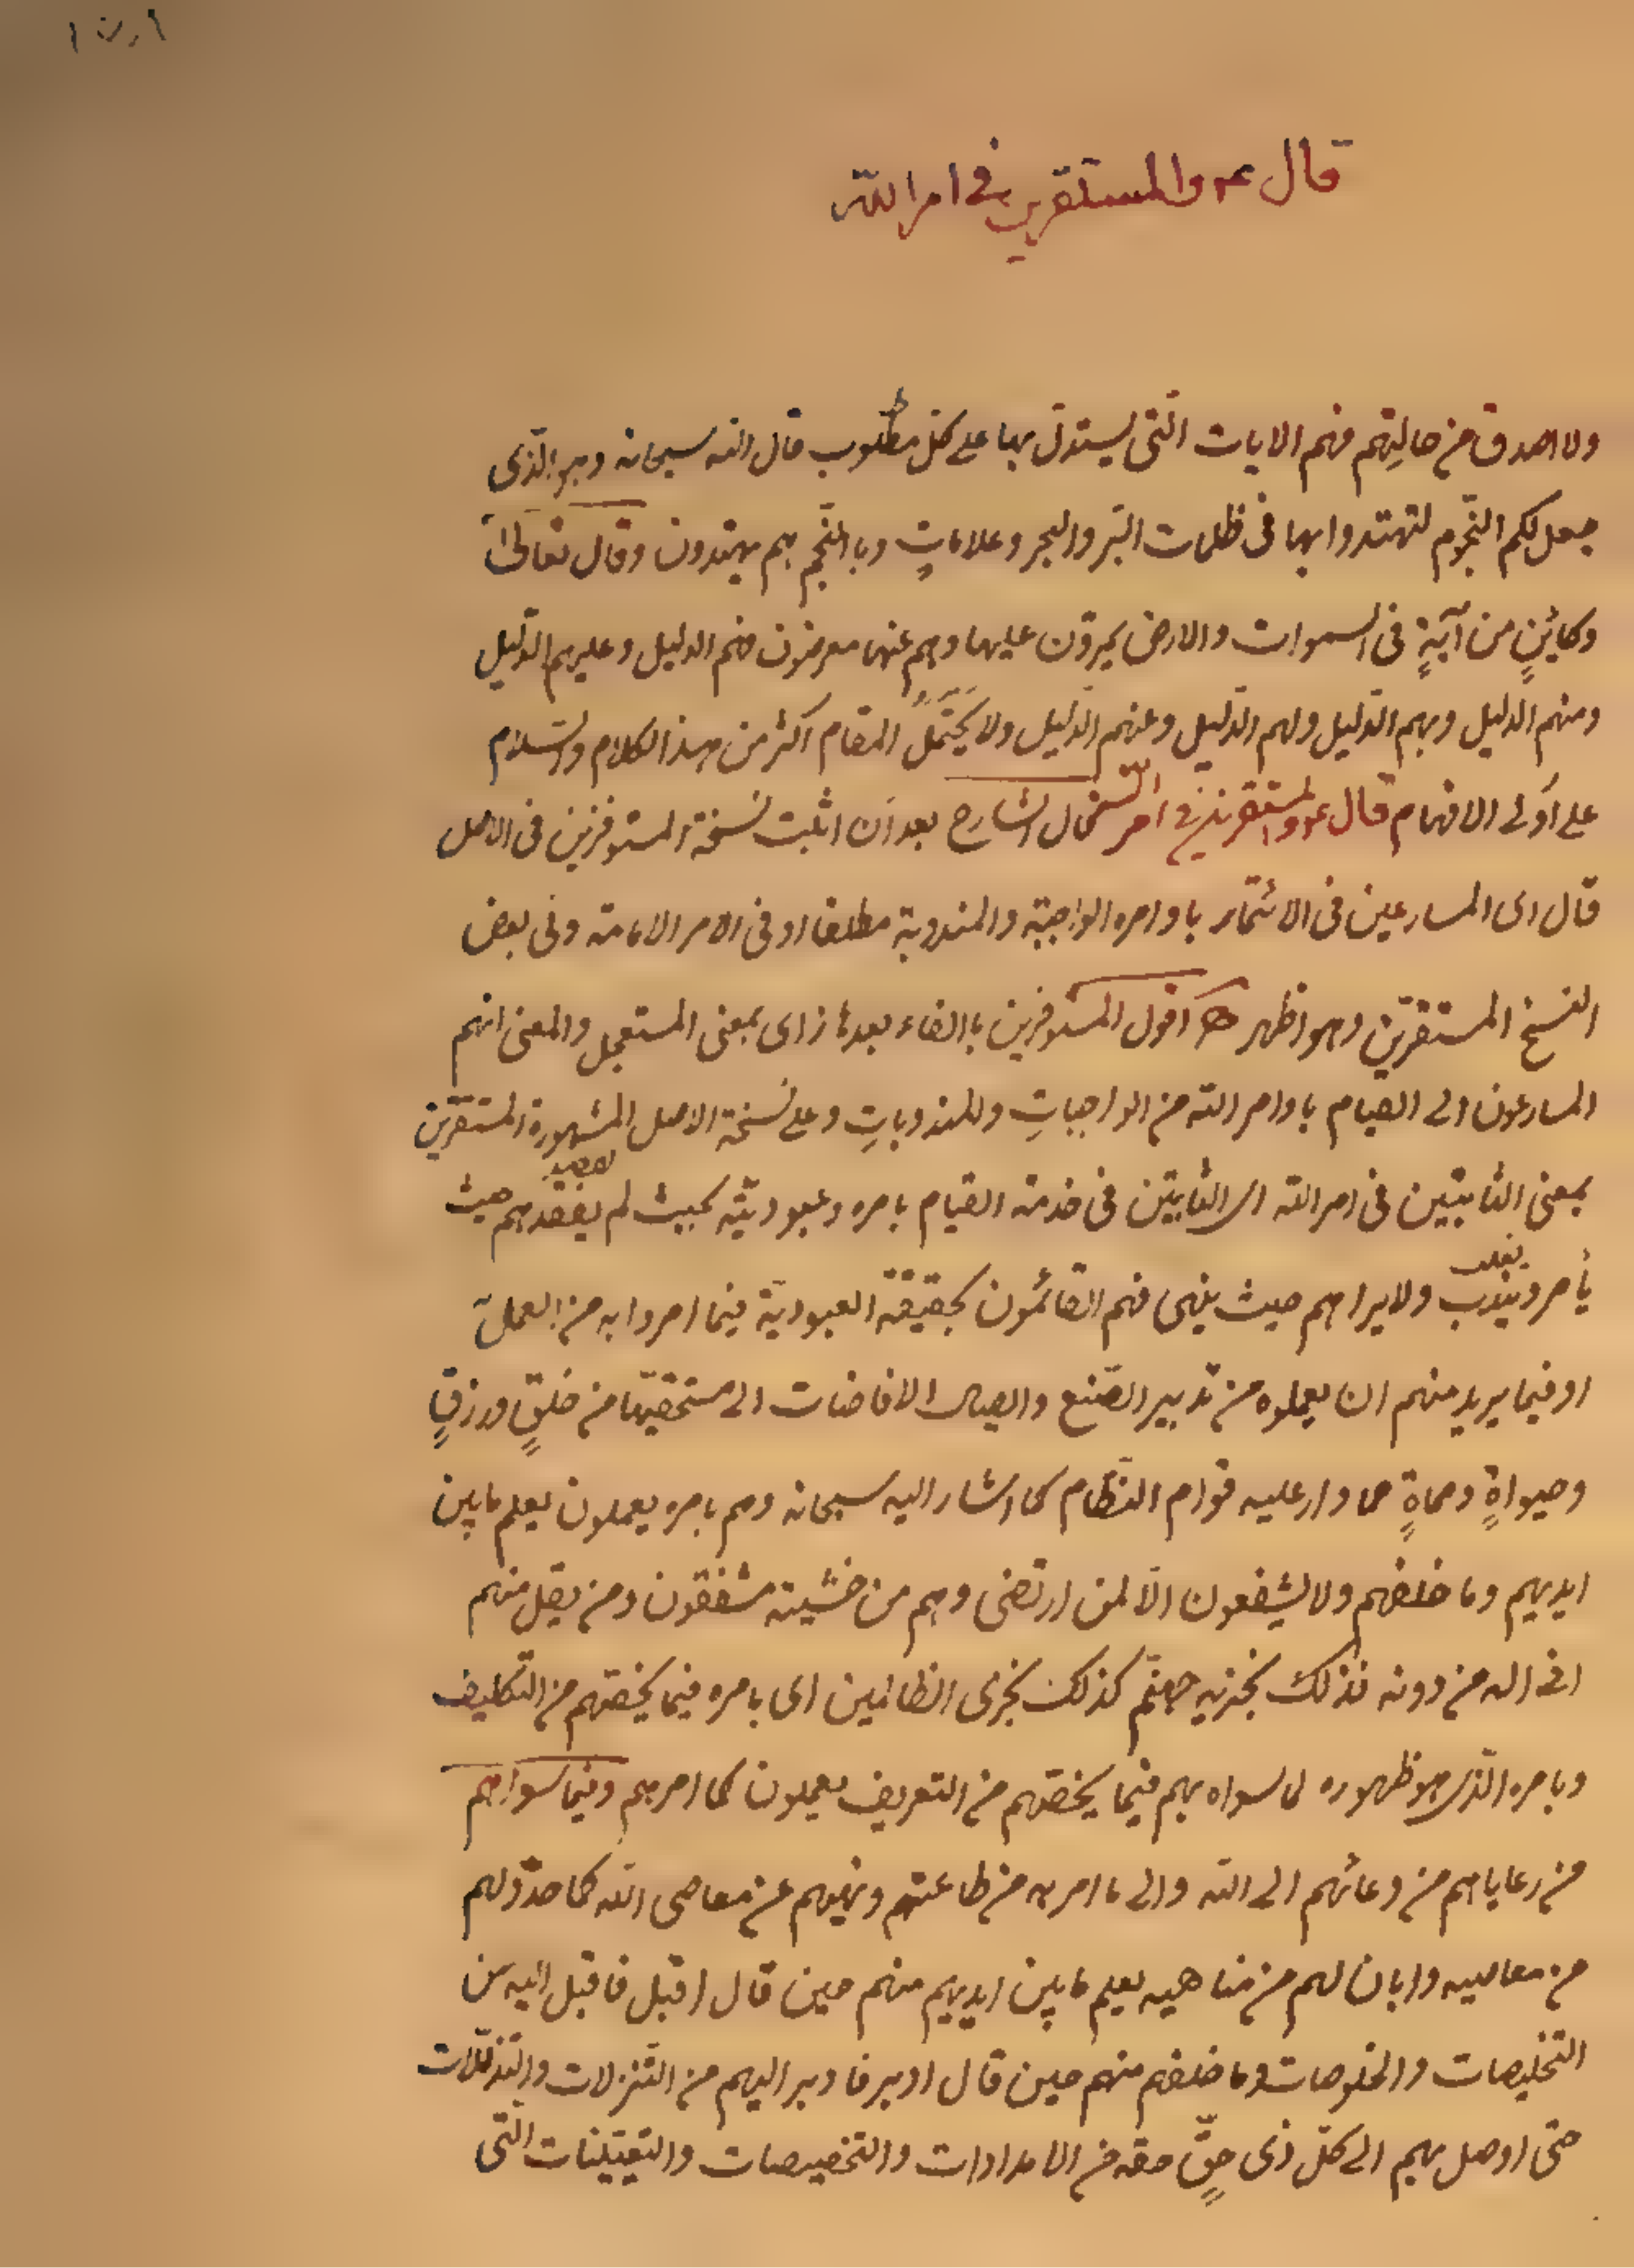 قال ع والمستقرين في امر الله
ولا اصدق من حاليتهم فهم الايات التي يستدل بها على كل مطلوب قال الله سبحانه وهو الذى
جعل لكم النجوم لتهتدوا بها فى ظلمات البر والبحر وعلامات وبالنجم هم يهتدون وقال تعالى
وكاين من آية فى السموات والارض يمرون عليها وهم عنها معرضون فهم الدليل وعليهم الدليل
ومنهم الدليل وبهم الدليل ولهم الدليل وعنهم الدليل ولا يحتمل المقام اكثر من هذا الكلام والسلام
على اولى الافهام قال ع والمستقرين في امر الله قال الشارح بعد ان اثبت نسخة المستوفزين فى الاصل
قال اى المسارعين فى الائتمار باوامره الواجبة والمندوبة مطلقا او فى الامر الامامة وفى بعض
النسخ المستقرين وهو اظهر اقول المستوفزين باالفاء بعدها زاى بمعنى المستعجل والمعنى انهم
المسارعون الى القيام باوامر الله من الواجبات والمندوبات وعلى نسخة الاصل المشهورة المستقرين
بمعنى الثابتين فى امر الله اى الثابتين فى خدمة القيام بامره وعبوديته بحيث لم يفقدهم حيث
يأمر ويندب ولا يراهم حيث ينهى فهم القائمون بحقيقة العبودية فيما امروا به من العمل
او فيما يريد منهم ان يعملوه من تدبير الصنع وايصال الافاضات الى مستحقيها من خلق ورزق
وحيواة ومماة مما دار عليه قوام النظام كما اشار اليه سبحانه وهم بامره يعملون يعلم ما بين
ايديهم وما خلفهم ولا يشفعون الا لمن ارتضى وهم من خشيته مشفقون ومن يقل منهم
انى اله من دونه فذلك نجزيه جهنم كذلك نجزى الظالمين اى بامره فيما يخصهم من التكليف
وبامره الذى هو ظهوره لما سواه بهم فيما يخصهم من التعريف يعملون كما امرهم وفيما سواهم
من رعاياهم من دعائهم الى الله والى ما امر به من طاعتهم ونهيهم عن معاصى الله كما حدد لهم
من معاصيه وابان لهم من مناهيه يعلم ما بين ايديهم منهم حين قال اقبل فاقبل اليه من
التخليصات والخلوصات وما خلفهم منهم حين قال ادبر فادبر اليهم من التنزلات والتذللات
حتى اوصل بهم الى كل ذى حق حقه من الامدادات والتخصيصات والتعيينات التى